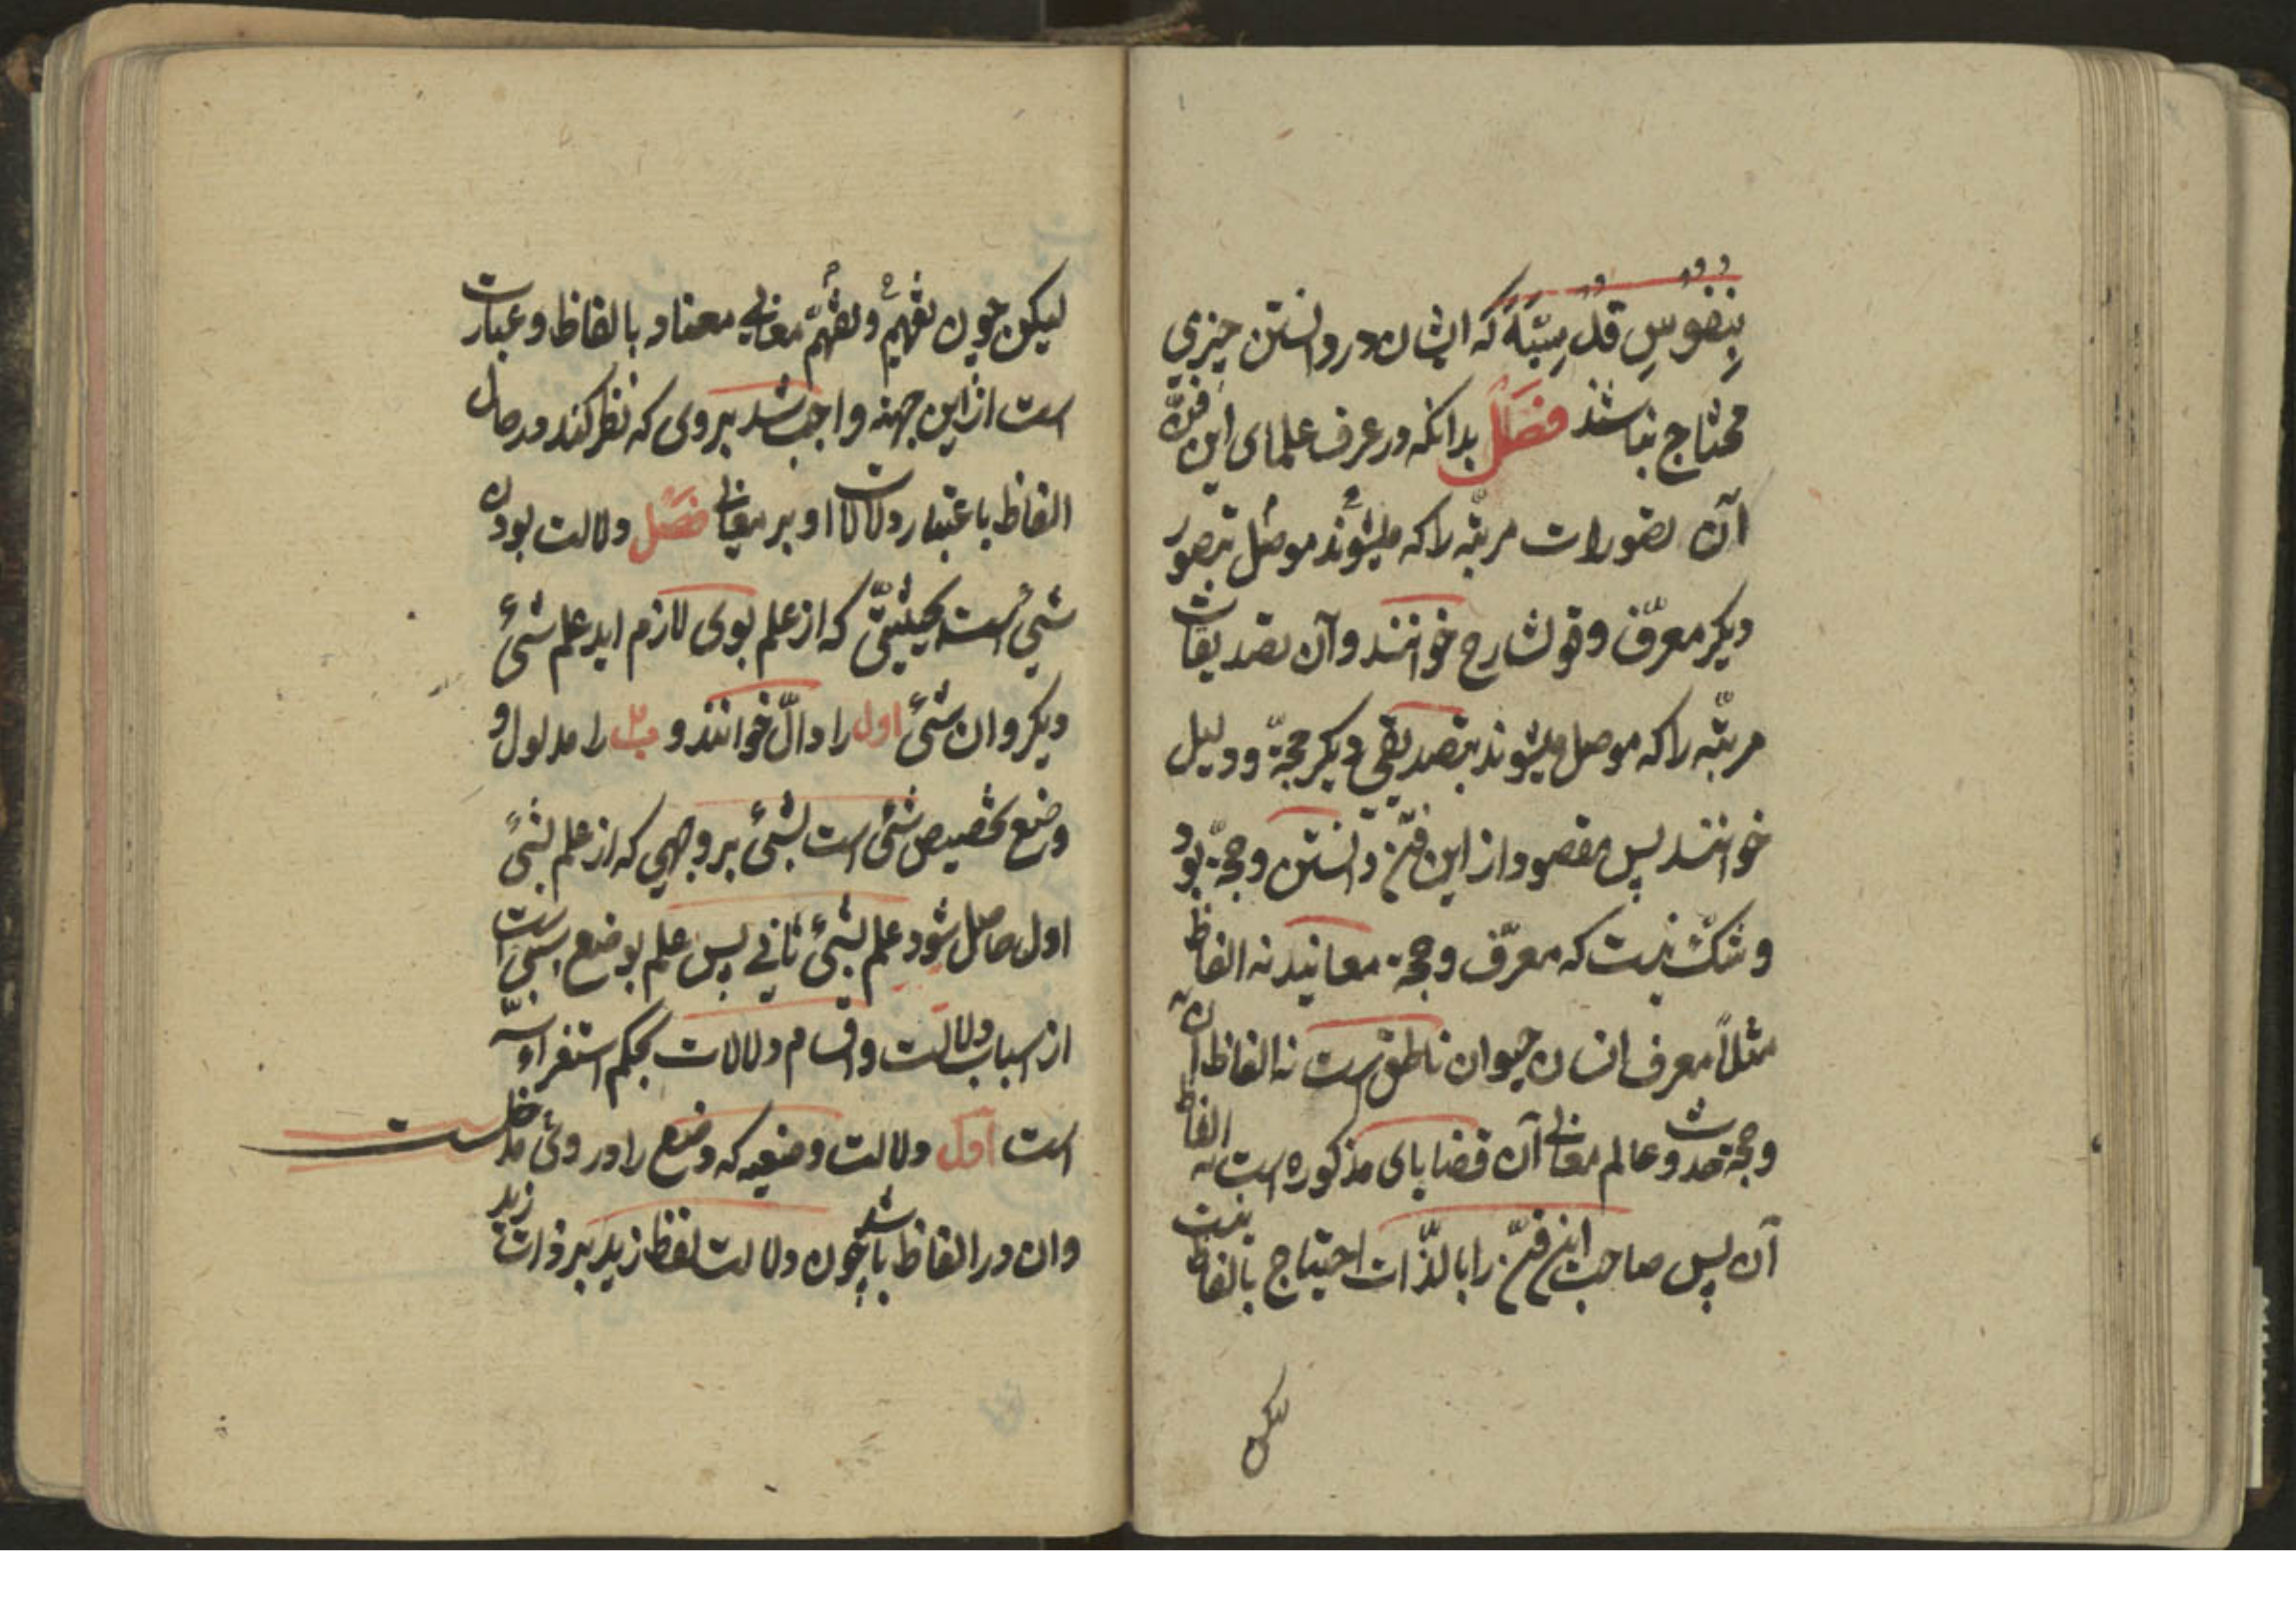 بنفوس قدسیّهٔ که ایشان در دانستن چیزی
محتاج نباشند فصل بدانکه در عرف علمای این فنّ
آن تصورات مرتبه را که میشوند موصل بتصور
دیکر معرّف و قول شارح خوانند و آن تصدیقات
مرتّبه را که موصل میشوند بتصدیقی دیکر حجّة و دلیل
خوانند پس مقصود از این فنّ دانستن و حجّة بود
و شکّ نیست که معرّف و حجة معانیند نه الفاظ
مثلاً معرف انسان حیوان ناطق است نه الفاظ آن
و حجة حدوث عالم معانی آن قضایای مذکوره است نه الفاظ
آن پس صاحب این فنّ را بالذّات احتیاج بالفاظ نیست
لیکن
لیکن چون تفهیم و تفهّم معانی معتاد بالفاظ و عبارت
است از این جهة واجب شد بروی که نظر کند در حال
الفاظ باعتبار دلالات او بر معانی فصل دلالت بودن
شیٔ است بحیثیتی که از علم بوی لازم اید علم شیٔ
دیکر و ان شیٔ اول را دالّ خوانند و را مدلول و
وضع تخصیص شیٔ است بشیٔ بر وجهی که از علم بشیٔ
اول حاصل شود علم بشیٔ ثانی پس علم بوضع سببی است
از اسباب دلالت و اقسام دلالات بحکم استقراء سه
است اول دلالت وضعیه که وضع را در وی مدخلست
و ان در الفاظ باشد چون دلالت لفظ زید بر ذات زید